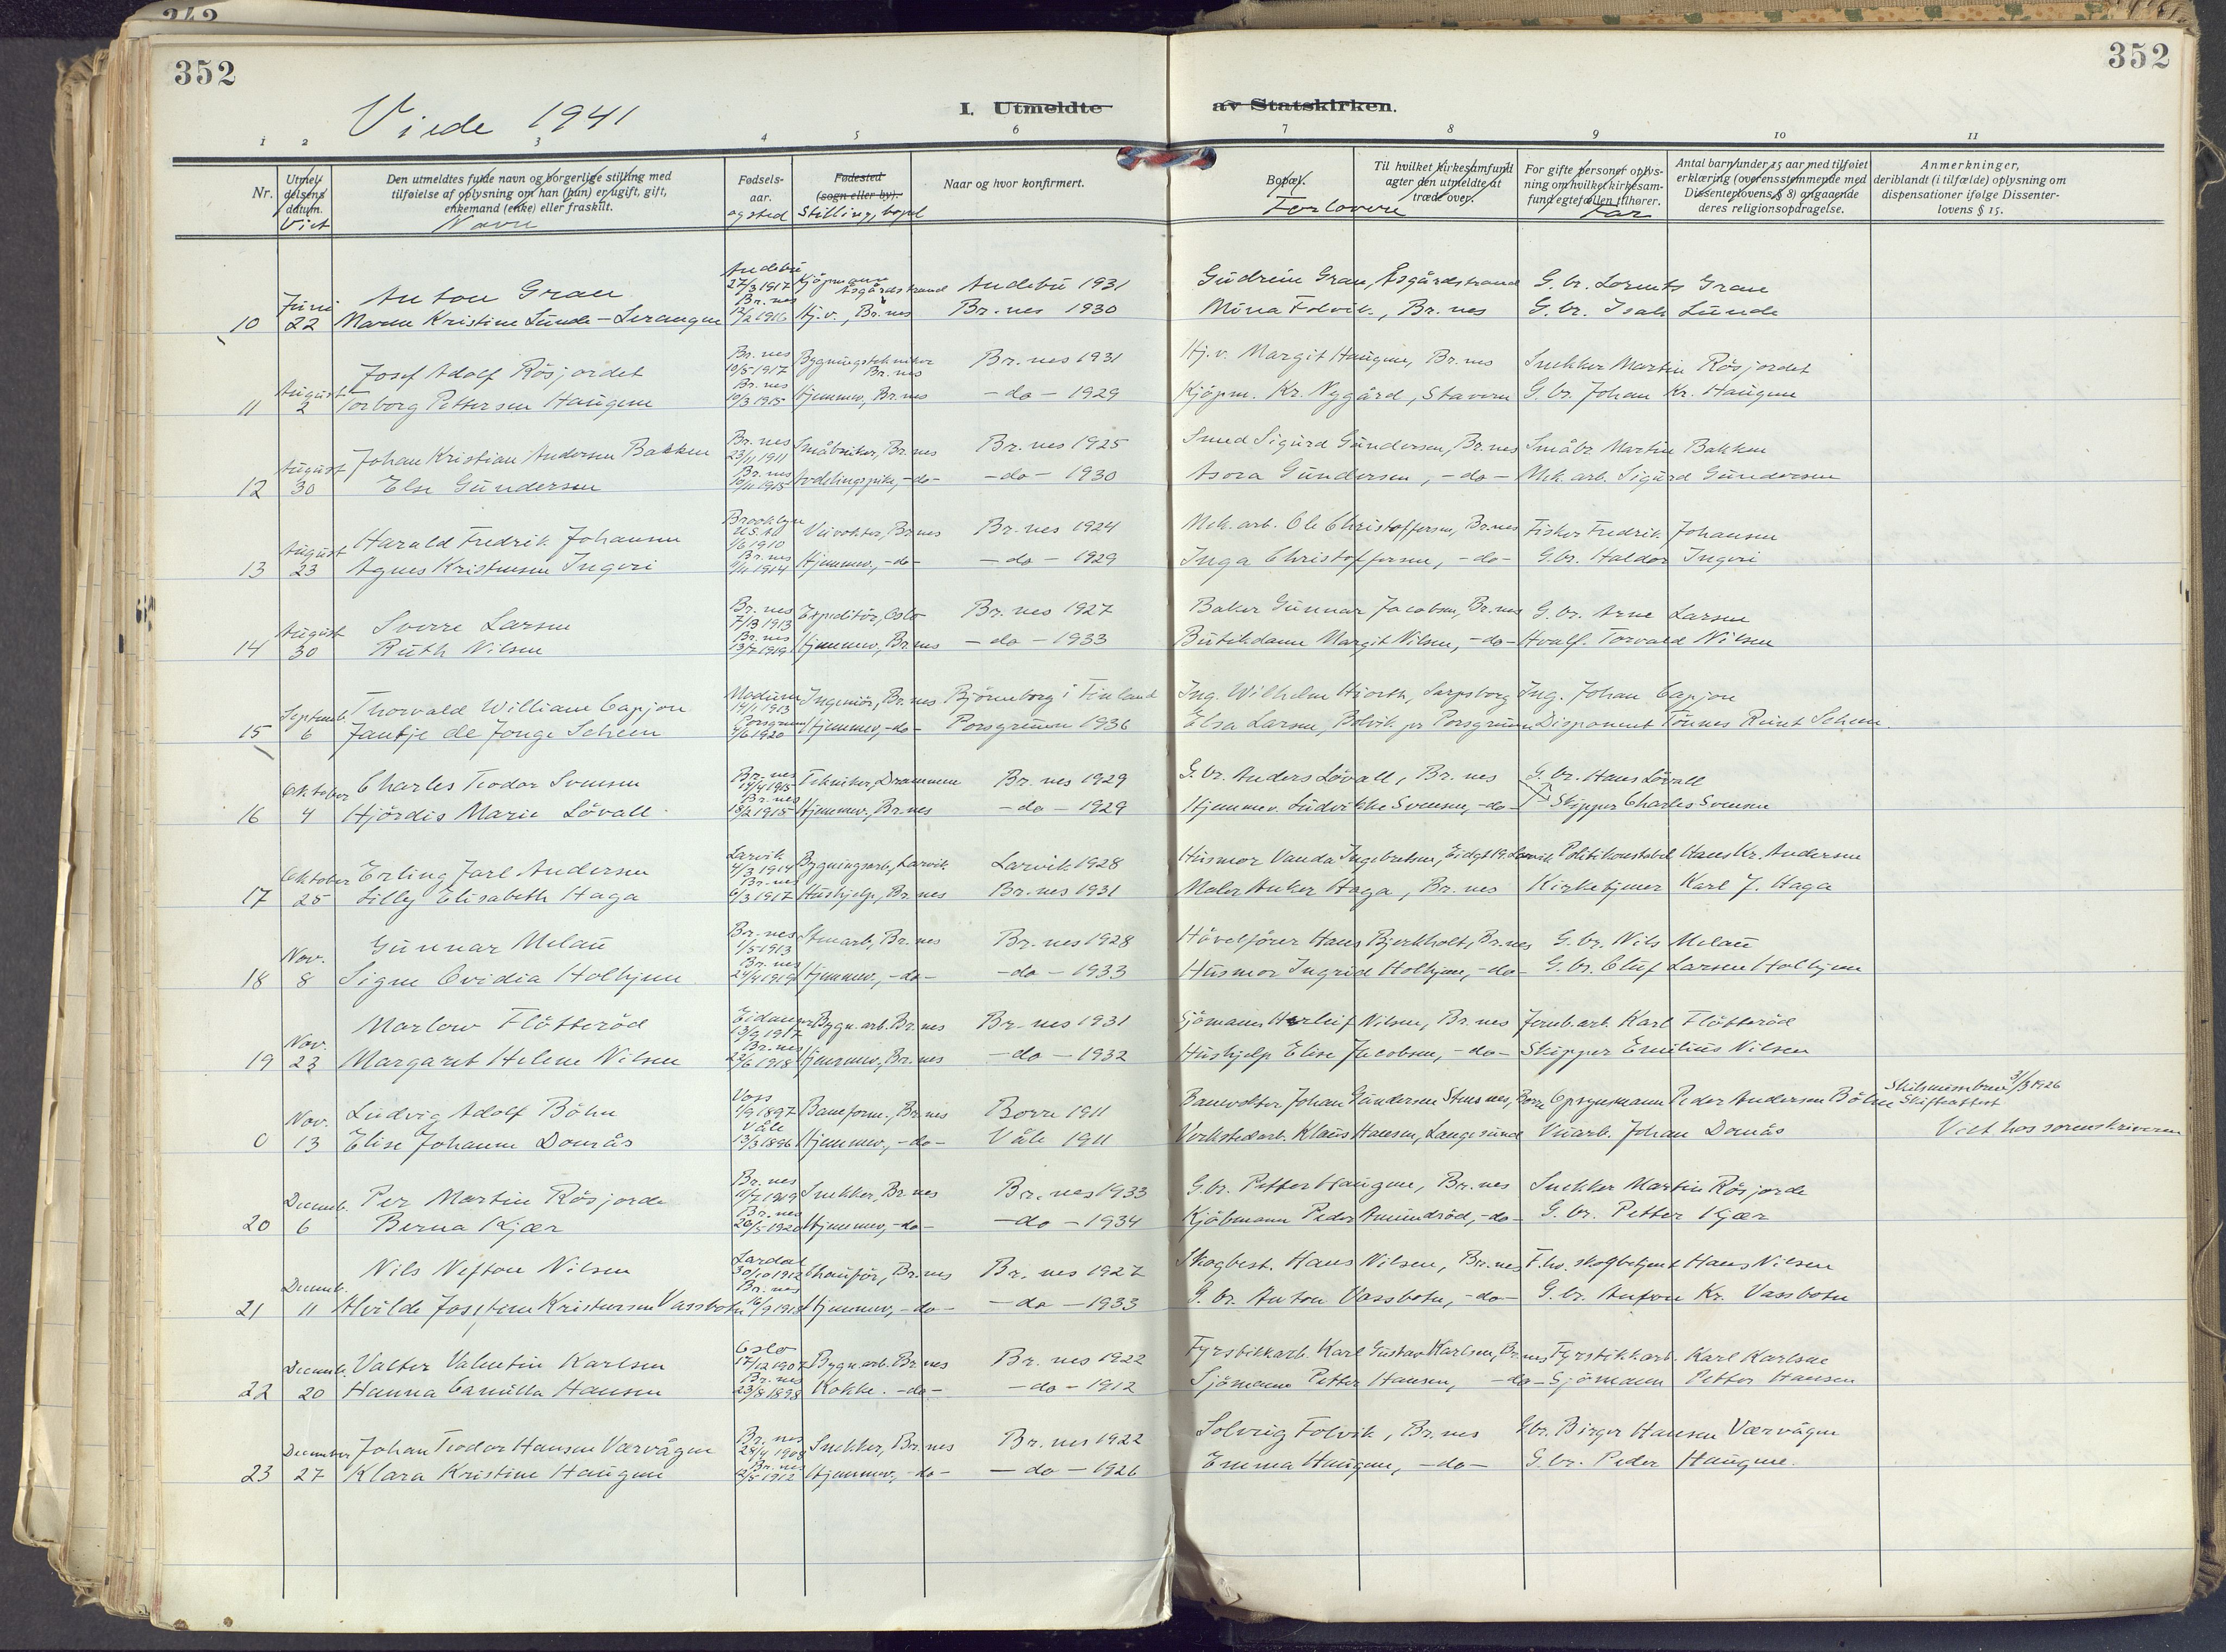 352
352
Viede 1941
I. Utmeldte av Statskirken.
1 2 3 4 5 6 7 8 9 10 11
Nr.
Utmel-
delsens
datum.
Viet
Den utmeldtes fulde navn og borgerlige stilling med
tilføielse af oplysning om han (hun) er ugift, gift,
enkemand (enke) eller fraskilt.
Navn
Fødsels-
aar.
og sted
Fødested
(sogn eller by).
Stilling, bopel
Naar og hvor konfirmert.
Bopæl.
Forlovere
Til hvilket kirkesamfund
agter den utmeldte at
træde over.
For gifte personer oplys-
ning om hvilket kirkesam-
fund egtefællen tilhører.
Far
Antal barn under 15 aar med tilføiet
erklæring (overensstemmende med
Dissenterlovens § 8) angaaende
deres religionsopdragelse.
Anmerkninger,
deriblandt (i tilfælde) oplysning om
dispensationer ifølge Dissenter-
lovens § 15.
Andebu 27/3 1917 Kjøpmann Åsgårdstrand Andebu 1931 Gudrun Grau, Åsgårdstrand G.br. Lorents Grau
Anton Grau
10 Juni 22 Maren Kristine Lunde - Br.nes 12/2 1916 Hj.v., Br.nes Br.nes 1930 Mina Folvik, Br.nes G.br. Isak Lunde
Josef Adolf Røsjordet Br.nes 10/5 1917 Bygningstekniker Br.nes Br.nes 1931 Hj.v. Margit Haugene, Br.nes Snekker Martin Røsjordet
11 August 2 Torborg Pettersen Haugene Br.nes 10/3 1915 Hjemmev., Br.nes -do- 1929 Kjøpm. Kr. Nygård, Stavern G.br. Johan Kr. Haugene
Johan Kristian Andersen Bakken Br.nes 23/11 1911 Småbruker, Br.nes Br.nes 1925 Smed Sigurd Gundersen, Br.nes Småbr. Martin Bakken
12 August 30 Else Gundersen Br.nes 10/11 1915 Avdelingspike, -do- -do- 1930 Asora Gundersen, -do- Mek. arb. Sigurd Gundersen
Harald Fredrik Johansen Brooklyn U.S.A. 1/6 1910 Veivokter, Br.nes Br.nes 1924 Mek. arb. Ole Christoffersen, Br.nes Fisker Fredrik Johansen
13 August 23 Agnes Kristensen Ingvri Br.nes 1914 Hjemmev., -do- -do- 1929 Inga Christoffersen, -do- G.br. Haldor Ingvri
Sverre Larsen Br.nes 7/3 1913 Expeditør, Oslo Br.nes 1927 Baker Gunnar Jacobsen, Br.nes G.br. Arne Larsen
14 August 30 Ruth Nilsen Br.nes 13/7 1919 Hjemmev., Br.nes -do- 1933 Butikdame Margit Nilsen, -do- Hvalf. Torvald Nilsen
Thorvald William Capjon Modum 14/1 1913 Ingeniør, Br.nes Bjørneborg i Finland Ing. Wilhelm Hiorth, Sarpsborg Ing. Johan Capjon
15 Septemb. 6 Jantje de Jonge Scheen Porsgrunn 4/6 1920 Hjemmev., -do- Porsgrunn 1936 Elsa Larsen, Bolvik pr Porsgrunn Disponent Tønnes Reint Scheen
Charles Teodor Svensen Br.nes 14/4 1915 Tekniker, Drammen Br.nes 1929 G.br. Anders Løvall, Br.nes G.br. Hans Løvall
16 Oktober 4 Hjørdis Marie Løvall Br.nes 18/2 1915 Hjemmev., Br.nes -do- 1929 Hjemmev. Ludvikke Svensen, -do- Skipper Charles Svensen
Erling Jarl Andersen Larvik 4/3 1914 Bygningsarb., Larvik Larvik 1928 Husmor Vanda Ingebretsen, Eidgt 19. Larvik Politikonstabel Hans Kr. Andersen
17 Oktober 25 Lilly Elisabeth Haga Br.nes 6/3 1917 Hushjelp, Br.nes Br.nes 1931 Maler Anker Haga, Br.nes Kirketjener Karl J. Haga
Gunnar Melau Br.nes 1/5 1913 Stenarb., Br.nes Br.nes 1928 Høvelfører Hans Bjerkholt, Br.nes G.br. Nils Melau
18 Nov. 8 Signe Ovidia Holhjem Br.nes 24/4 1919 Hjemmev., -do- -do- 1933 Husmor Ingrid Holhjem, -do- G.br. Oluf Larsen Holhjem
Marlow Fløtterød Eidanger 13/9 1917 Bygn.arb. Br.nes Br.nes 1931 Sjømann Herleif Nilsen, Br.nes Jernb.arb. Karl Fløtterød
19 Nov. 23 Margaret Helene Nilsen Br.nes 23/6 1918 Hjemmev., Br.nes -do- 1932 Hushjelp Elise Jacobsen, -do- Skipper Emilius Nilsen
Ludvig Adolf Bøhn Voss 1/9 1897 Baneform., Br.nes Borre 1911 Banevokter Johan Gundersen Stensnes, Borre Opsynsmann Peder Andersen Bøhn Skilsmissebrev 31/3 1926 Skifteattest
0 Nov. 13 Elise Johanne Donås Våle 13/3 1896 Hjemmev., -do- Våle 1911 Verkstedarb. Klaus Hansen, Langesund Veiarb. Johan Donås Viet hos sorenskriveren
Per Martin Røsjorde Br.nes 11/7 1919 Snekker, Br.nes Br.nes 1933 G.br. Petter Haugene, Br.nes Snekker Martin Røsjorde
20 Decemb. 6 Berna Kjær Br.nes 26/5 1920 Hjemmev., -do- -do- 1934 Kjøbmann Peder Amundrød, -do- G.br. Petter Kjær
Nils Nefton Nilsen Lardal 30/10 1912 Chauffør, Br.nes Br.nes 1927 Skogbest. Hans Nilsen, Br.nes F.hv. skogbetjent Hans Nilsen
21 Decemb. 11 Alvilde Josefine Kristensen Vassbotn Br.nes 16/9 1918 Hjemmev., -do- -do- 1933 G.br. Anton Vassbotn, -do- G.br. Anton Kr. Vassbotn
Valter Valentin Karlsen Oslo 17/12 1907 Bygn.arb. Br.nes Br.nes 1922 Fyrstikkarb. Karl Gustav Karlsen, Br.nes Fyrstikkarb. Karl Karlsen
22 Decemb. 20 Hanna Camilla Hansen Br.nes 23/8 1898 Kokke. -do- -do- 1912 Sjømann Petter Hansen, -do- Sjømann Petter Hansen
Johan Teodor Hansen Værvågen Br.nes 28/4 1908 Snekker, Br.nes Br.nes 1922 Solveig Folvik, Br.nes Gbr. Birger Hansen Værvågen
23 December 27 Klara Kristine Haugene Br.nes 12/5 1912 Hjemmev., -do- -do- 1926 Emma Haugene, -do- G.br. Peder Haugene.